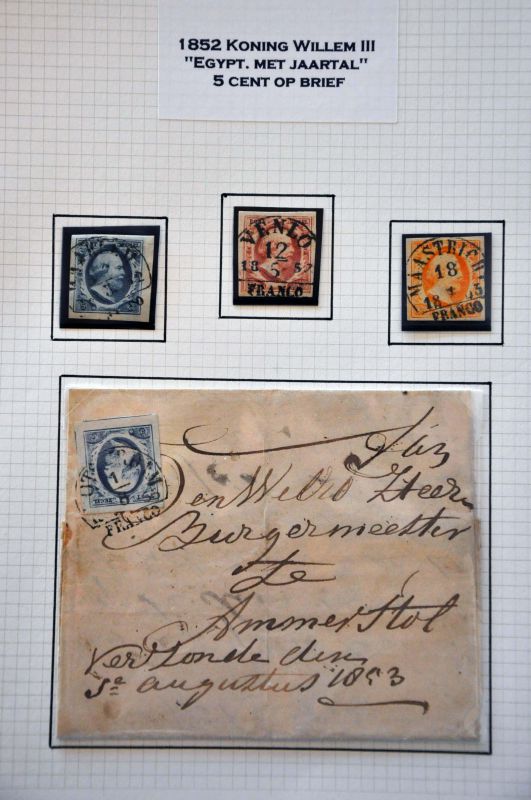 1852 KONING WILLEM III
"EGYPT. MET JAARTAL"
5 CENT OP BRIEF
VENLO
12
5
18 57
FRANCO
MAASTRICHT
18
18 53
FRANCO
FRANCO
Aan
den WelEd Heer
Burgermeester
te
Ammerstol
Verzonde den
5e augustus 1853